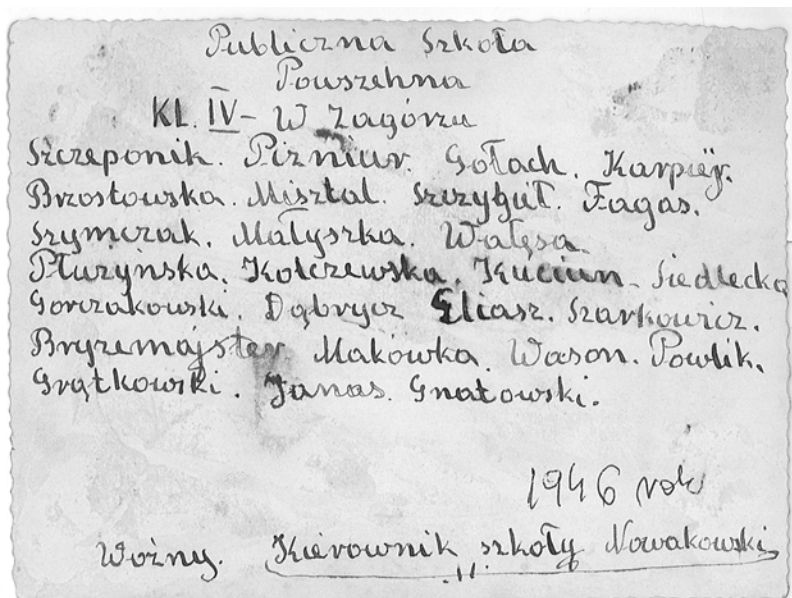 Publiczna Szkoła
Powszehna
KL. IV - W Zagórzu
Szczeponik. Pizniur. Gołach. Karpiёj.
Brzostowska. Misztal. Szczyguł. Fagas.
Szymczak. Małyszka. Wałęsa.
Płużyńska. Kolczewska. Kuciun - Siedlecka
Gorczakowski. Dąbrycz Eliasz. Szarkowicz.
Bryzemajster. Makówka. Wason. Powlik.
Grątkowski. Janas. Gnatowski.
1946 rok
Woźny. Kierownik szkoły Nowakowski